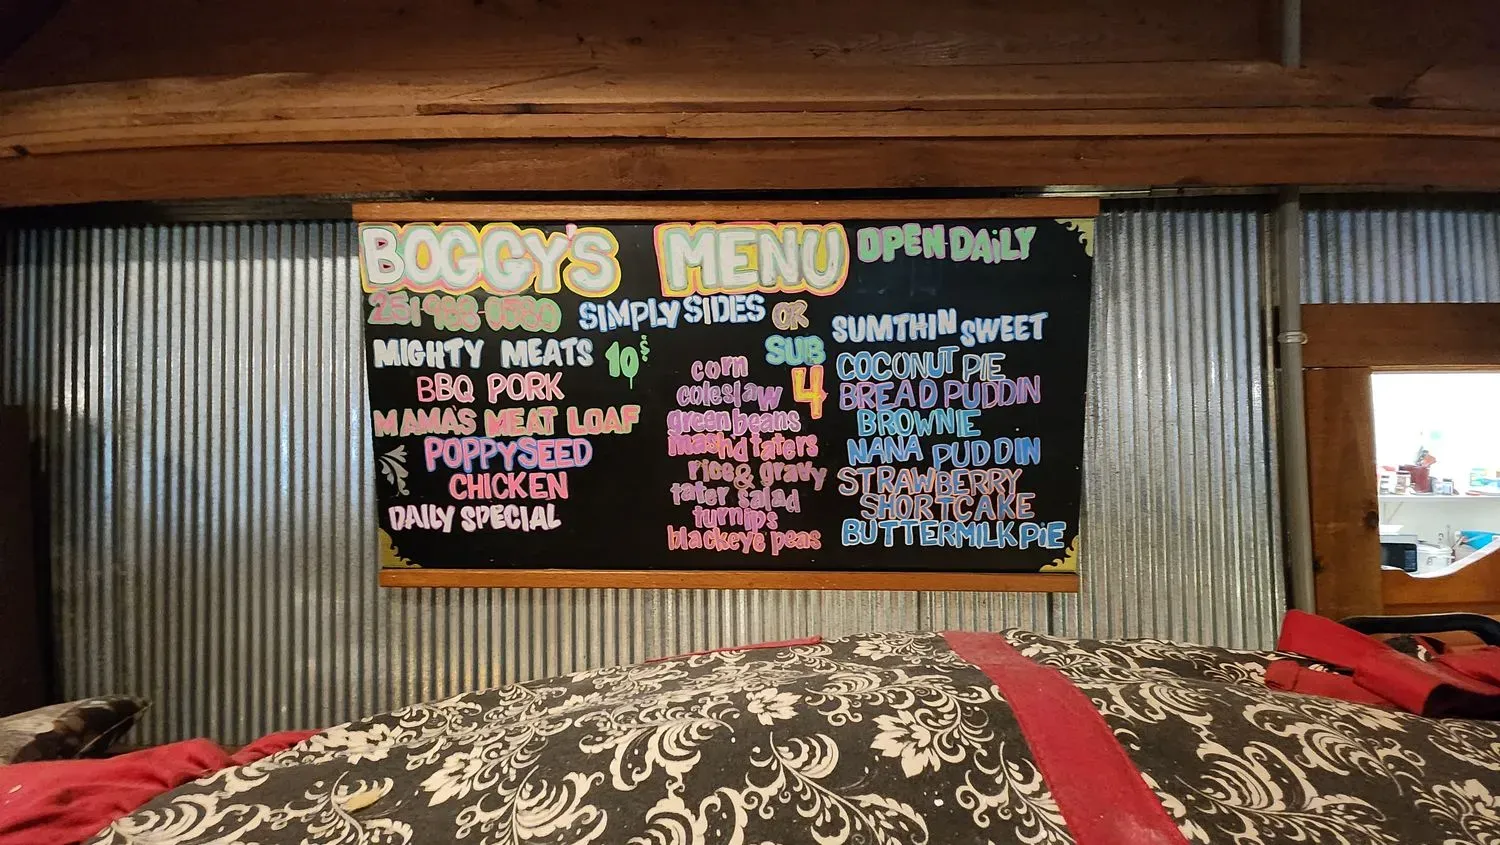 BOGGY'S MENU OPEN DAiLY
SIMPLY SIDES OR
SUB
4
MIGHTY MEATS 10
BBQ PORK
MAMA'S MEAT LOAF
POPPYSEED
CHICKEN
DAILY SPECIAL
corn
coleslaw
green beans
mashd taters
rice & gravy
tater salad
turnips
blackeye peas
SUMTHIN SWEET
COCONUT PIE
BREAD PUDDIN
BROWNIE
NANA PUDDIN
STRAWBERRY
SHORTCAKE
BUTTERMILK PiE